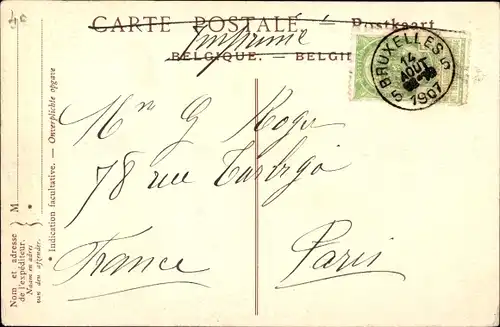 CARTE POSTALE — Postkaart
Imprimé
BELGIQUE. — BELGI
BRUXELLES 5
14
AOUT
1907
5
Mr G Roger
78 rue Turbigo
Paris
France
Nom et adresse
de l'expéditeur.
Naam en adres
van den afzender.
M
*
* Indication facultative. — Onverplichte opgave